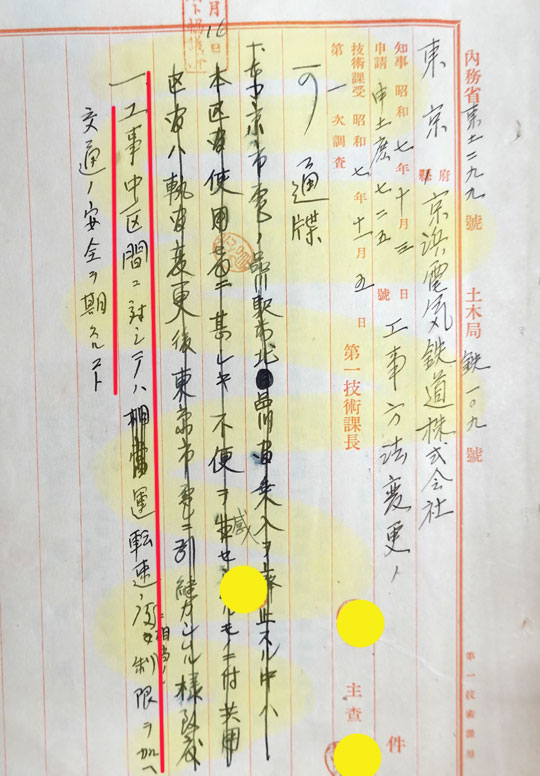 内務省東土二九九號 土木局鉄一〇九號
東京府縣 京浜電気鉄道株式会社
知事 昭和七年十月三日
申請 申土庶七二五號 工事方法変更ノ件
技術課受 昭和七年十一月五日
第一次調査 第一技術課長 主査
可通牒
月16日
東京市電ノ品川駅前 品川 乗入ヲ 止スル中ハ
本区 使用者ニ甚シキ不便ヲ感セ ルモノニ付共用
区 ハ軌 変更後東京市電ニ引継カシムル様
一、工事中区間ニ対シテハ相当運転速度ノ制限ヲ加ヘ
交通ノ安全ヲ期スルコト
第一技術課用